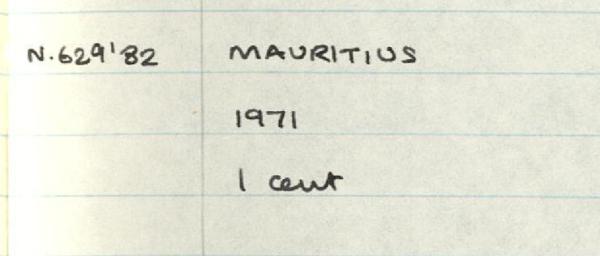 N.629'82 MAURITIUS
1971
1 cent